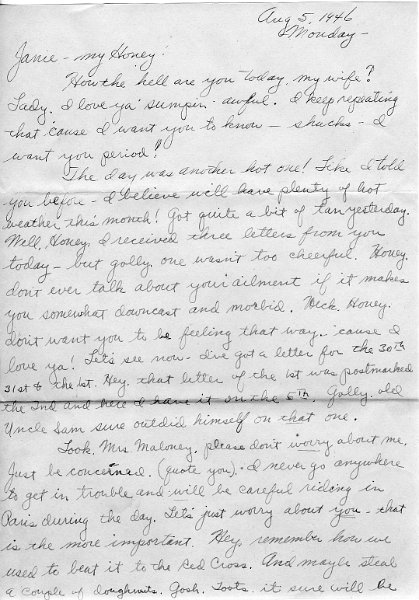 Aug 5, 1946
Monday -
Janie - my Honey!
How the hell are you today, my wife?
Lady, I love ya' sumpin' awful. I keep repeating
that 'cause I want you to know - shucks - I
want you period!
The day was another hot one! Like I told
you before - I believe we'll have plenty of hot
weather this month! Got quite a bit of tan yesterday.
Well, Honey, I received three letters from you
today - but golly, one wasn't too cheerful. Honey,
don't ever talk about your ailment if it makes
you somewhat downcast and morbid. Heck, Honey,
don't want you to be feeling that way. 'cause I
love ya! Let's see now - I've got a letter for the 30th
31st & the 1st. Hey, that letter of the 1st was postmarked
the 2nd and here I have it on the 5th. Golly, old
Uncle Sam sure outdid himself on that one.
Look, Mrs Maloney, please don't worry about me,
Just be concerned. (quote you). I never go anywhere
to get in trouble and will be careful riding in
Paris during the day. Let's just worry about you - that
is the more important. Hey, remember how we
used to beat it to the Red Cross. And maybe steal
a couple of doughnuts. Gosh, Toots, it sure will be